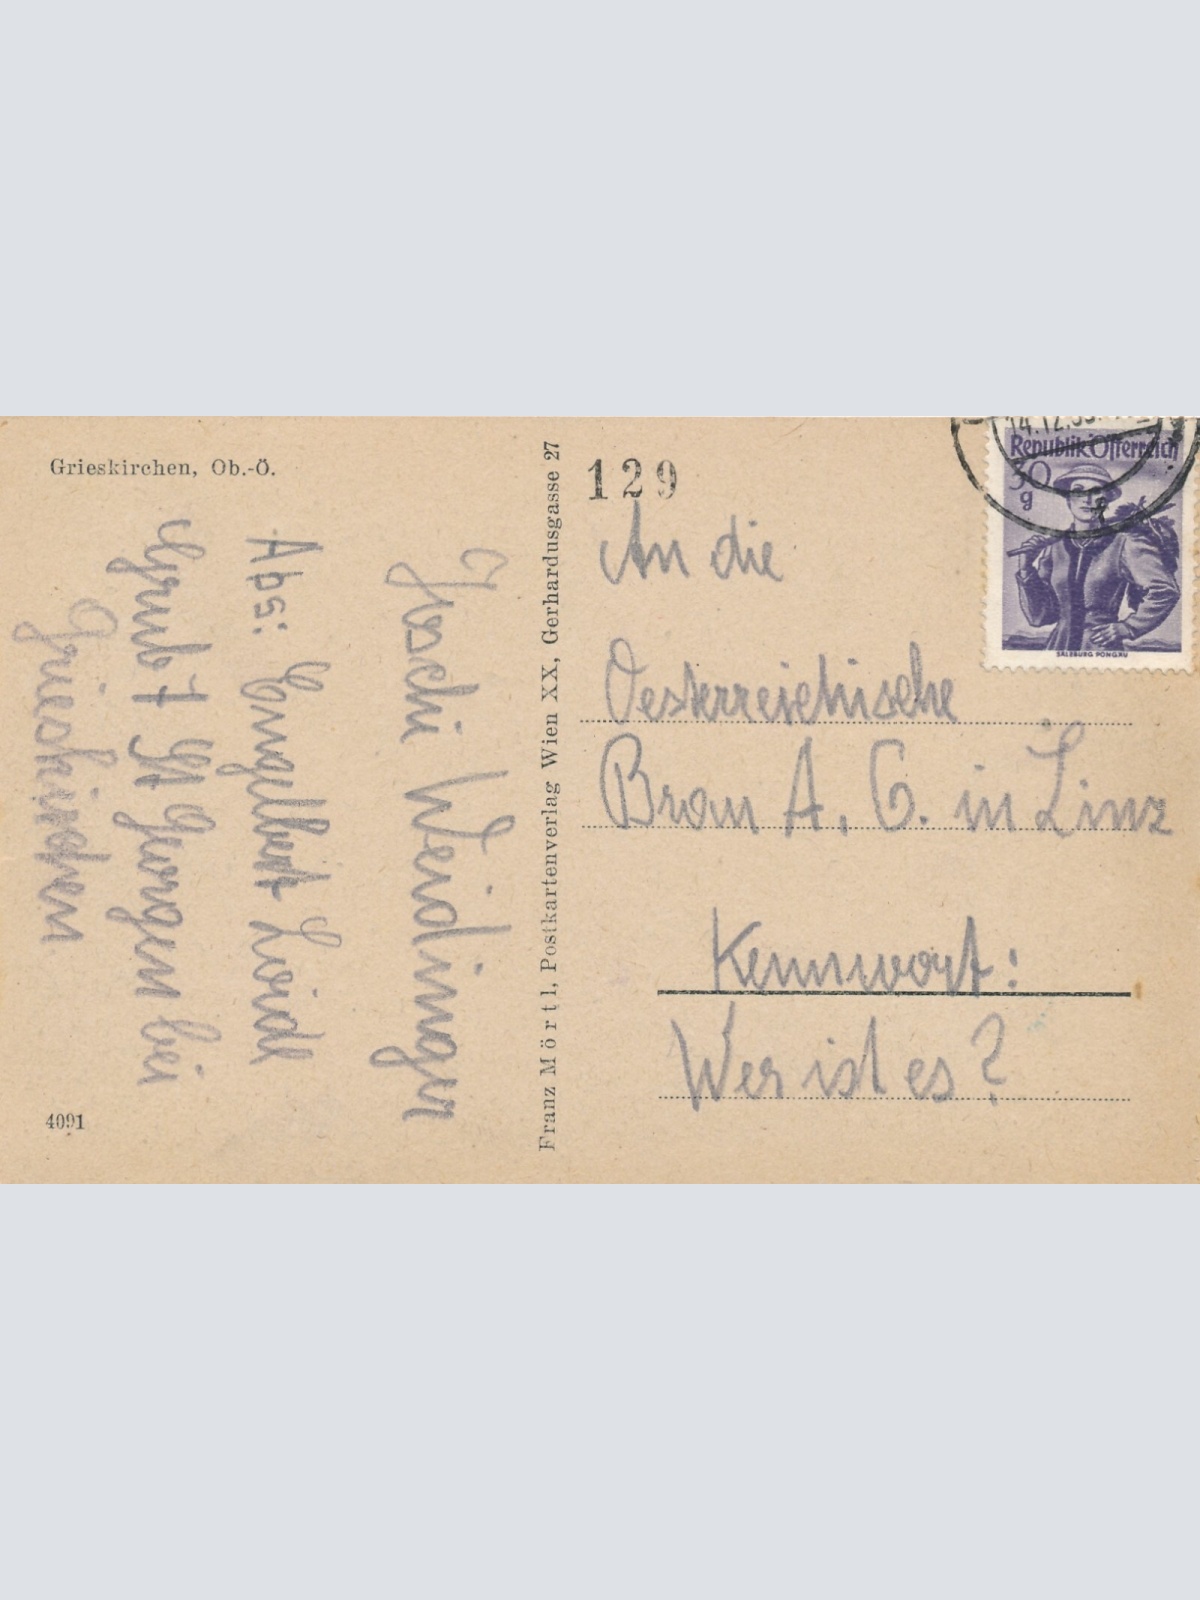 Grieskirchen, Ob.-Ö.
Joschi Weidinger
Abs: Engelbert Loidl
7 St Georgen bei
Grieskirchen
4091
Franz Mörtl, Postkartenverlag Wien XX, Gerhardusgasse 27
129
An die
Oesterreichische
Brau A. G. in Linz
Kennwort:
Wer ist es?
14.12.
Republik Österreich
30
g
SALZBURG PONGAU